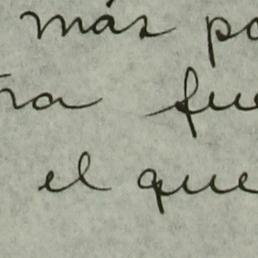 más po
ra fue
el que